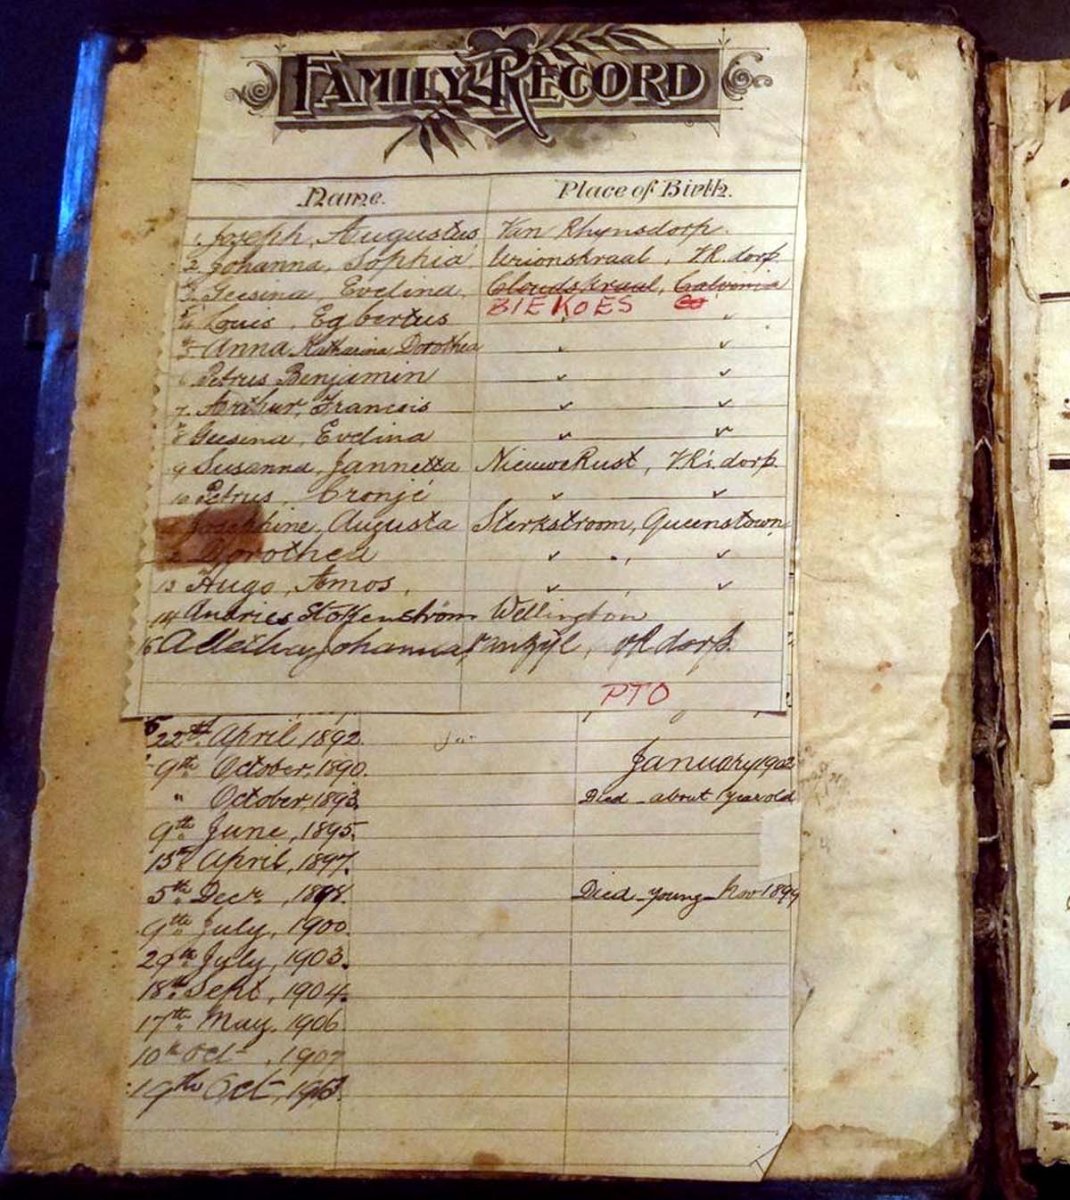 FAMILY RECORD
Name. Place of Birth.
1. Joseph, Augustus Van Rhynsdorp.
2. Johanna, Sophia Urionskraal, V.R. dorp.
3. Geesina, Evelina, Cloudskraal, Calvinia
BIEKOES Co
4 Louis, Egbertus " "
5 Anna Katharina Dorothea " "
6 Petrus Benjamin " "
7. Arthur, Francois " "
8 Geesina, Evelina " "
9 Susanna, Jannetta Nieuwe Rust, V.R's dorp.
10 Petrus, Cronjé " "
Josephine, Augusta Sterkstroom, Queenstown,
2 Dorothea " " "
13 Hugo, Amos, " "
14 Andries Stokenström Wellington
15 Aletha Johanna van Zijl, v R dorp.
PTO
22nd April 1892.
9th October, 1890. January 1902
" October, 1893. Died about 1 year old
9th June, 1895.
13th April, 1897.
5th Decr, 1898. Died young Nov 1899
9th July, 1900.
29th July, 1903.
18th Sept, 1904.
17th May, 1906
10th Oct, 1907
19th Oct, 1913.